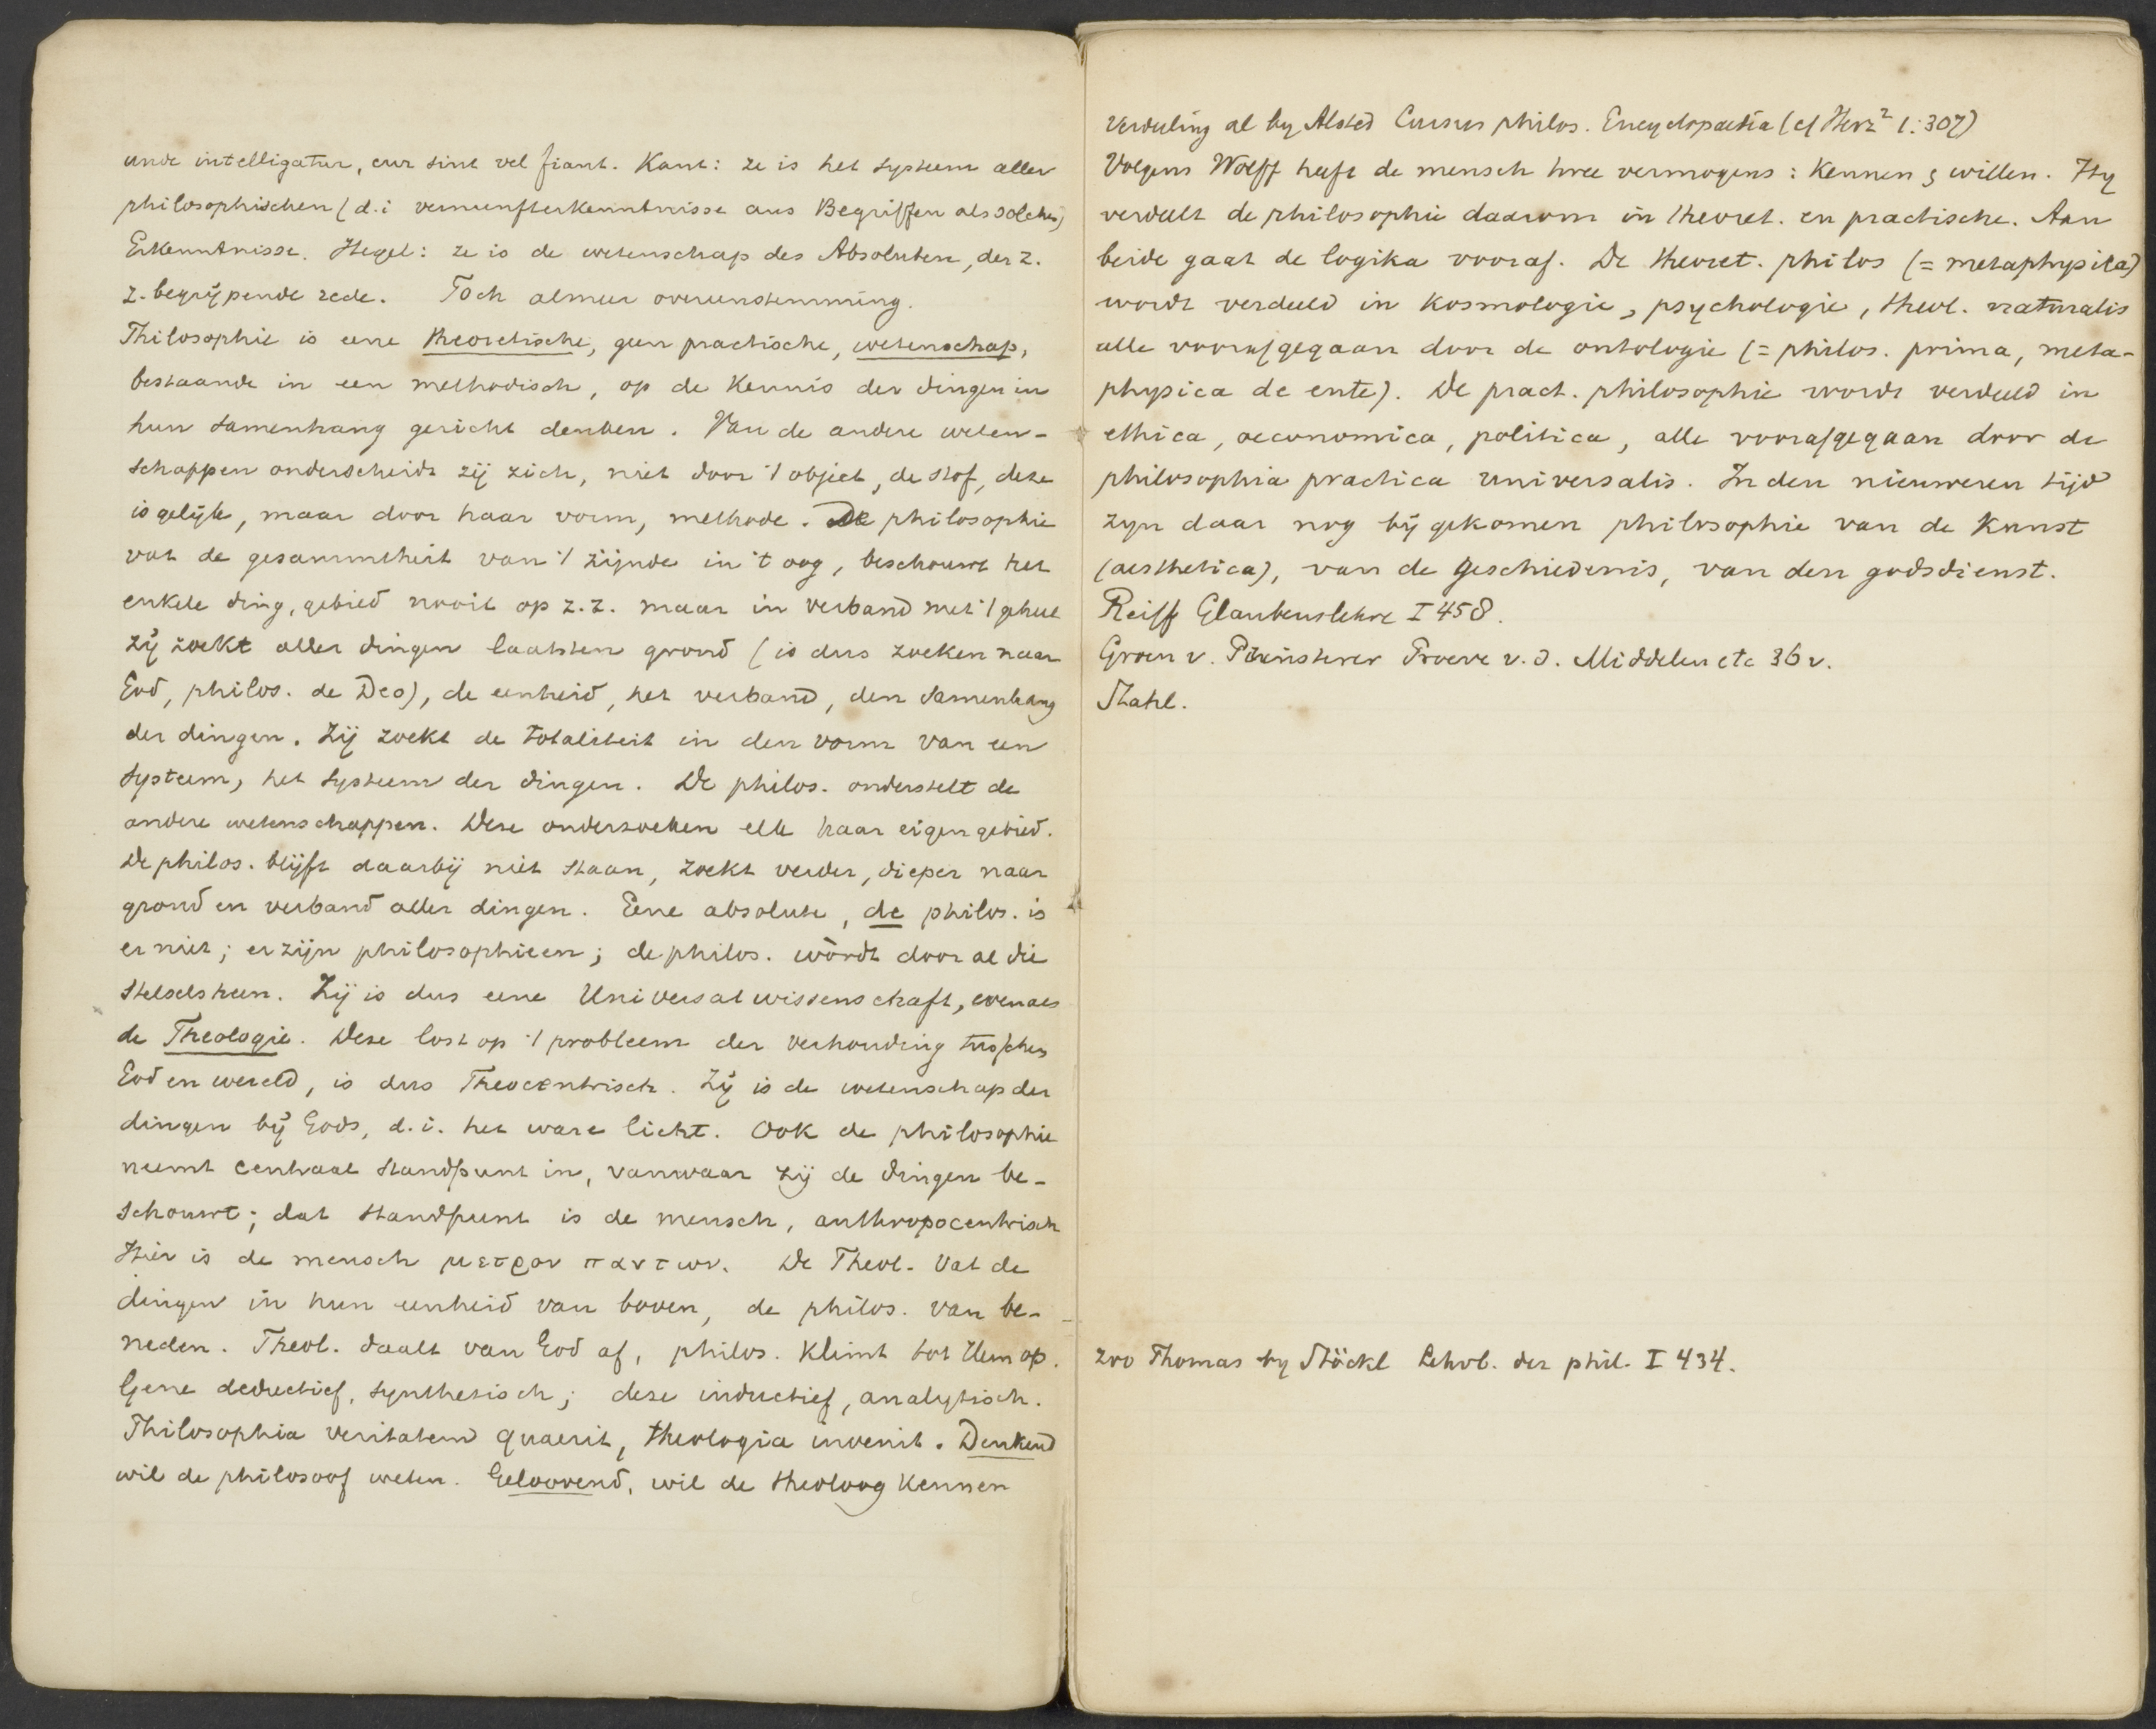 unde intelligatur, cur sint vel fiant. Kant: ze is het systeem aller
philosophischen (d.i vernunfterkenntnisse aus Begriffen als solchen)
Erkenntnisse. Hegel: ze is de wetenschap des Absoluten, der z.
z. begrijpende rede. Toch almeer overeenstemming.
Philosophie is eene theoretische, geen practische, wetenschap,
bestaande in een methodisch, op de kennis der dingen in
hun samenhang gericht denken. Van de andere weten-
schappen onderscheidt zij zich, niet door 't object, de stof, deze
is gelijk, maar door haar vorm, methode. De philosophie
vat de gesammtheit van 't zijnde in 't oog, beschouwt het
enkele ding, gebied nooit op z.z. maar in verband met 't geheel
zij zoekt aller dingen laatsten grond (is dus zoeken naar
God, philos. de Deo), de eenheid, het verband, den samenhang
der dingen. Zij zoekt de totaliteit in den vorm van een
systeem, het systeem der dingen. De philos. onderstelt de
andere wetenschappen. Deze onderzoeken elk haar eigen gebied.
De philos. blijft daarbij niet staan, zoekt verder, dieper naar
grond en verband aller dingen. Eene absolute, de philos. is
er niet; er zijn philosophieen; de philos. wordt door al die
stelsels heen. Zij is dus eene Universalwissenschaft, evenals
de Theologie. Deze lost op 't probleem der verhouding tusschen
God en wereld, is dus Theocentrisch. Zij is de wetenschap der
dingen bij Gods, d.i. het ware licht. Ook de philosophie
neemt centraal standpunt in, vanwaar zij de dingen be-
schouwt; dat standpunt is de mensch, anthropocentrisch
Hier is de mensch μετρον παντων. De Theol. vat de
dingen in hun eenheid van boven, de philos. van be-
neden. Theol. daalt van God af, philos. klimt tot Hem op.
Gene deductief, synthetisch; deze inductief, analytisch.
Philosophia veritatem quaerit, theologia invenit. Denkend
wil de philosoof weten. Geloovend, wil de theoloog kennen
Verdeeling al by Alsted Cursus philos. Encyclopaedia (cf Herz² 1:307)
Volgens Wolff heeft de mensch twee vermogens: kennen & willen. Hy
verdeelt de philosophie daarom in theoret. en practische. Aan
beide gaat de logika vooraf. De theoret. philos (= metaphysica)
wordt verdeeld in kosmologie, psychologie, theol. naturalis
alle voorafgegaan door de ontologie (= philos. prima, meta-
physica de ente). De pract. philosophie wordt verdeeld in
ethica, oeconomica, politica, alle voorafgegaan door de
philosophia practica universalis. In den nieuweren tijd
zyn daar nog bij gekomen philosophie van de kunst
(aesthetica), van de geschiedenis, van den godsdienst.
Reiff Glaubenslehre I 458.
Groen v. Prinsterer Proeve v.d. Middelen etc 36 v.
Stahl.
zoo Thomas by Stöckl Lehrb. der phil. I 434.